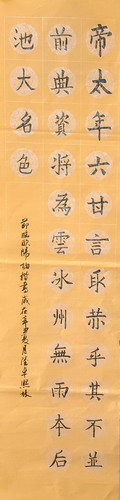 帝太年六甘言取恭乎其不並
前典資將為雲冰州無雨本后
池大名色
節臨歐陽詢楷書歲在辛丑夏月